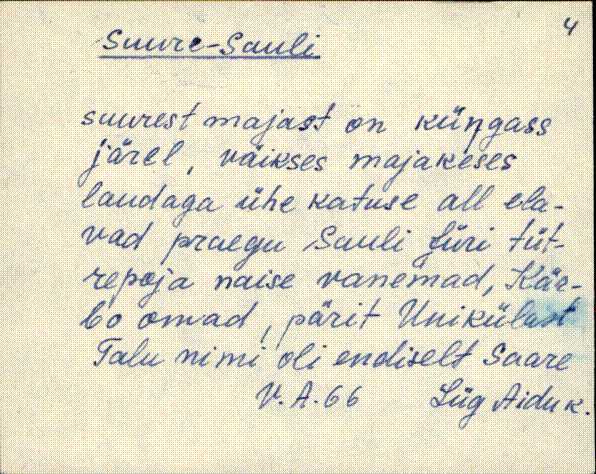 4
Suure-Sauli
suurest majast on küŋgass
järel, väikses majakeses
laudaga ühe katuse all ela-
vad praegu Sauli Jüri tüt-
repoja naise vanemad, Kär-
bo omad, pärit Unikülast
Talu nimi oli endiselt Saare
V.A.66 Lüg Aidu k.